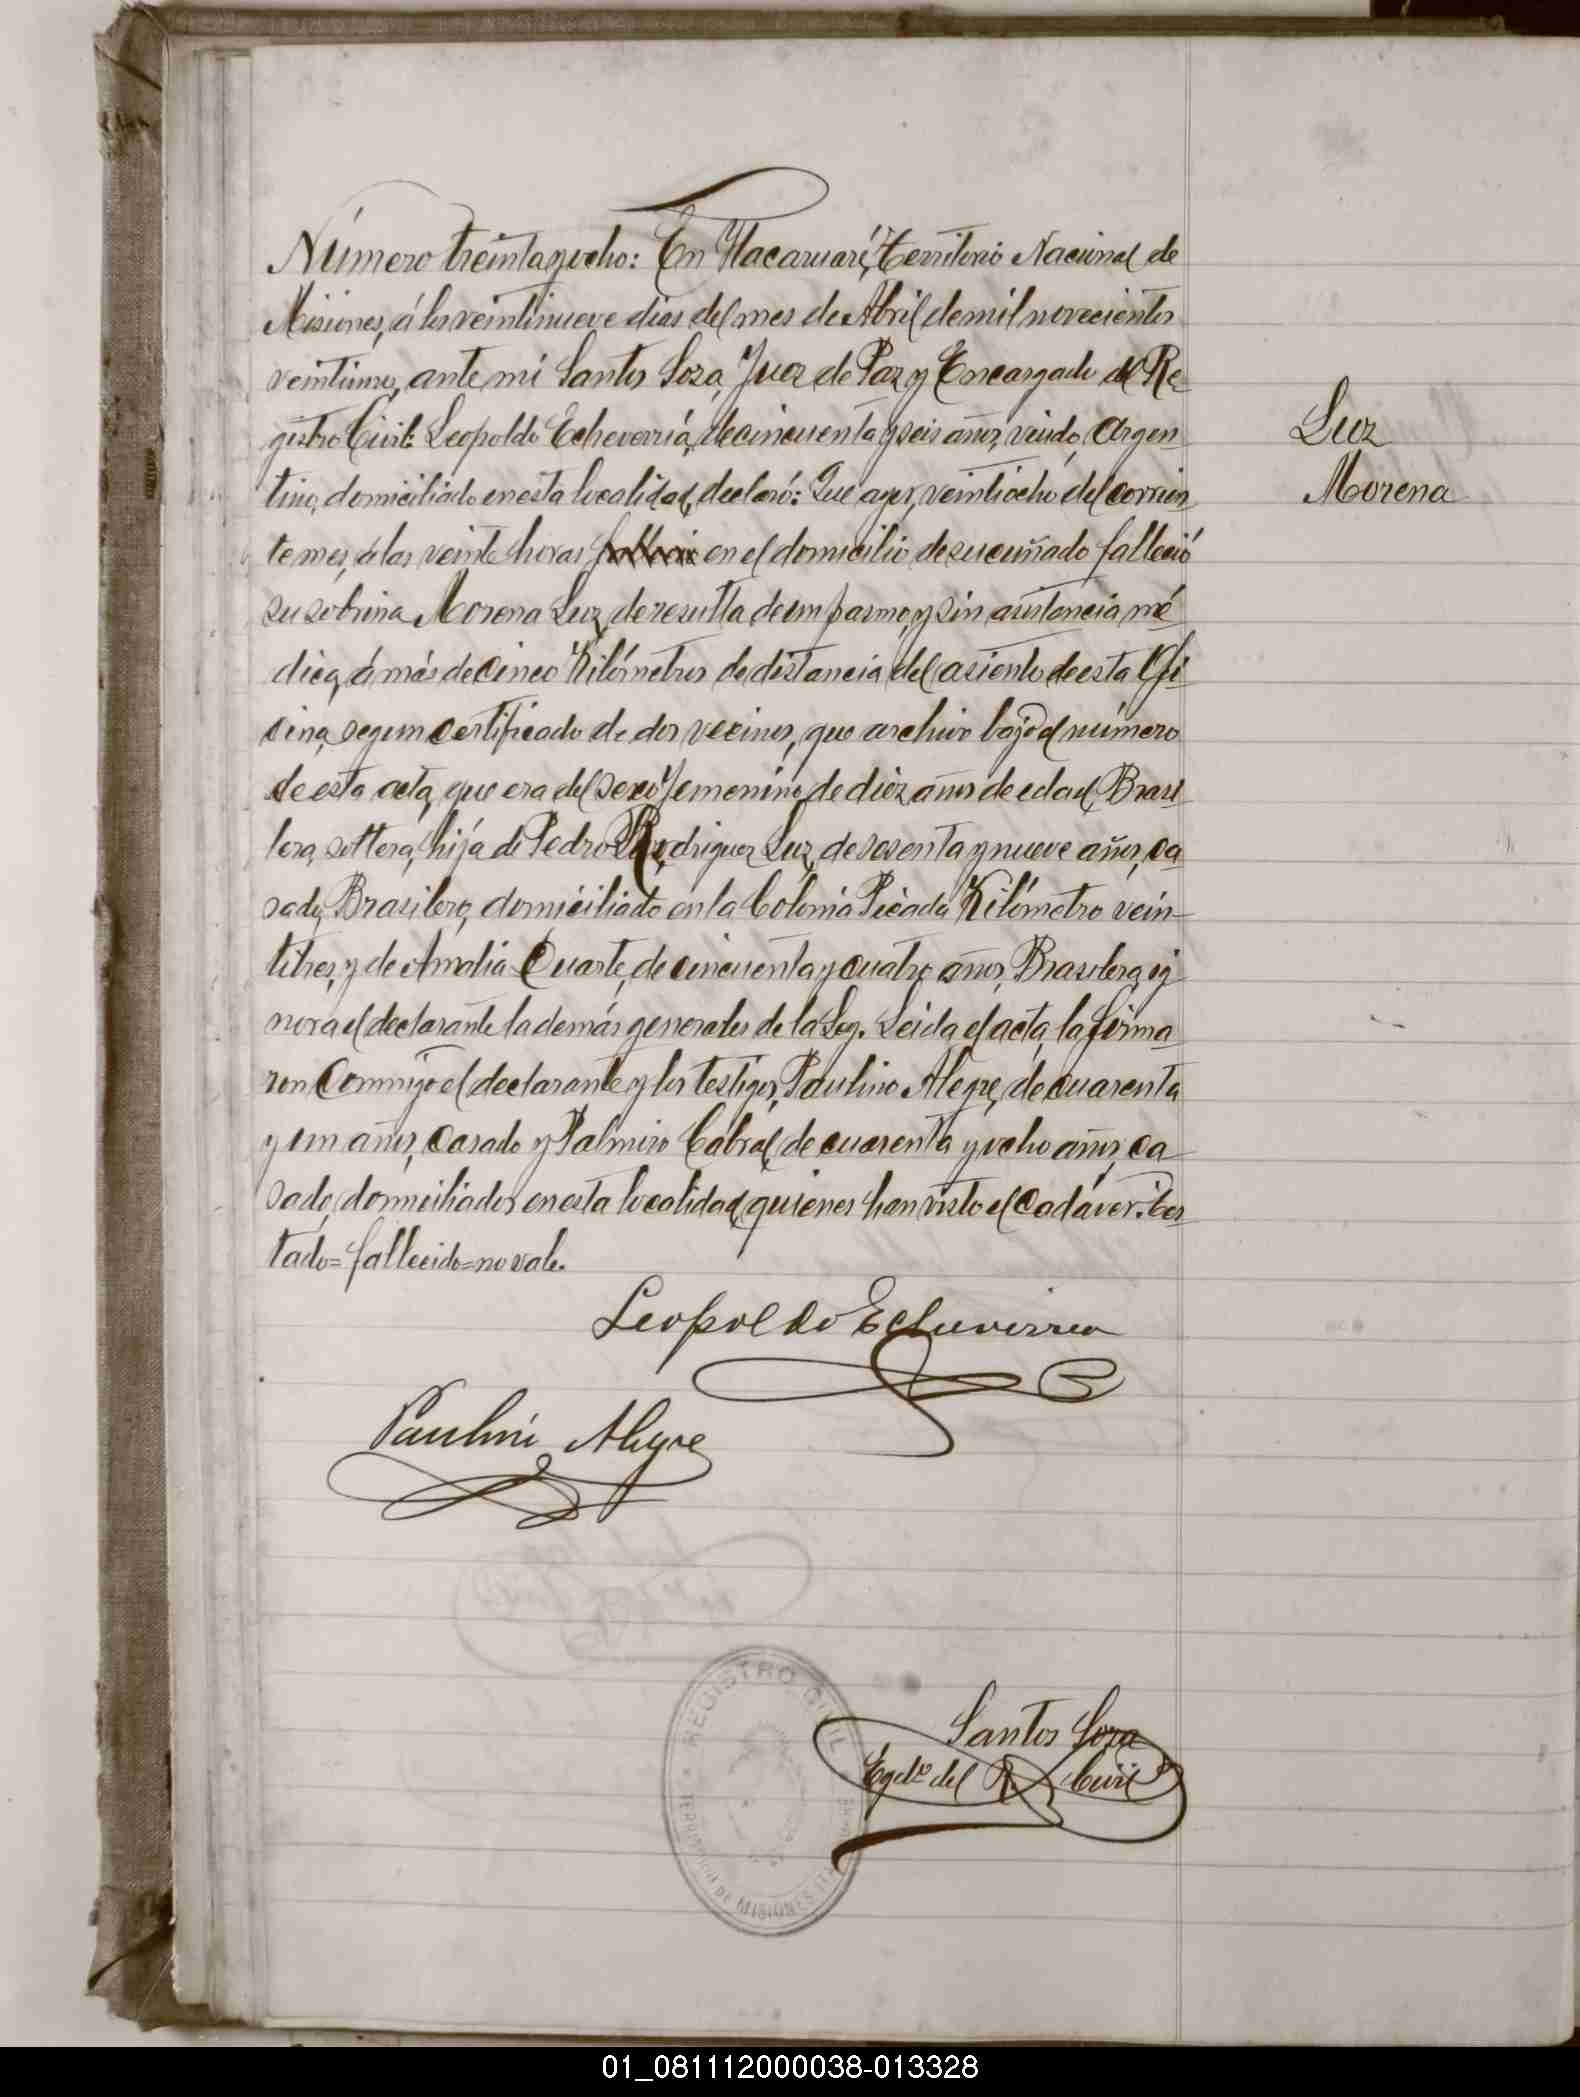 Número treinta y ocho: En Itacaruaré, Territorio Nacional de
Misiones, á los veintinueve dias del mes de Abril de mil novecientos
veintiuno, ante mi Santos Soza, Juez de Paz y Encargado del Re-
gistro Civil: Leopoldo Echeverría, de cincuenta y seis años, viudo, Argen-
tino, domiciliado en esta localidad, declaró: Que ayer, veintiocho del corrien-
te mes, á las veinte horas en el domicilio de su cuñado falleció
su sobrina Morena Luz, de resulta de un pasmo, y sin asistencia mé-
dica, á más de cinco Kilómetros de distancia del asiento de esta Ofi-
cina, segun certificado de dos vecinos, que archivo bajo el número
de esta acta, que era del sexo Femenino, de diez años de edad, Brasi-
lera, soltera, hija de Pedro Rodriguez Luz, de sesenta y nueve años, ca-
sado, Brasilero, domiciliado en la Colonia Picada Kilómetro vein-
titres, y de Amalia Duarte, de cincuenta y cuatro años, Brasilera, ig-
nora el declarante la demás generales de la Ley. Leida el acta, la firma-
ron conmigo el declarante y los testigos, Paulino Alegre, de cuarenta
y un años, casado y Palmiro Cabral, de cuarenta y ocho años, ca-
sado, domiciliados en esta localidad, quienes han visto el cadáver. Tes-
tado=fallecido=no vale.
Luz
Morena
Leopoldo Echeverria
Paulino Alegre
Santos Soza
Egdo del R. Civil
REGISTRO CIVIL
TERRITORIO DE MISIONES
01_081112000038-013328